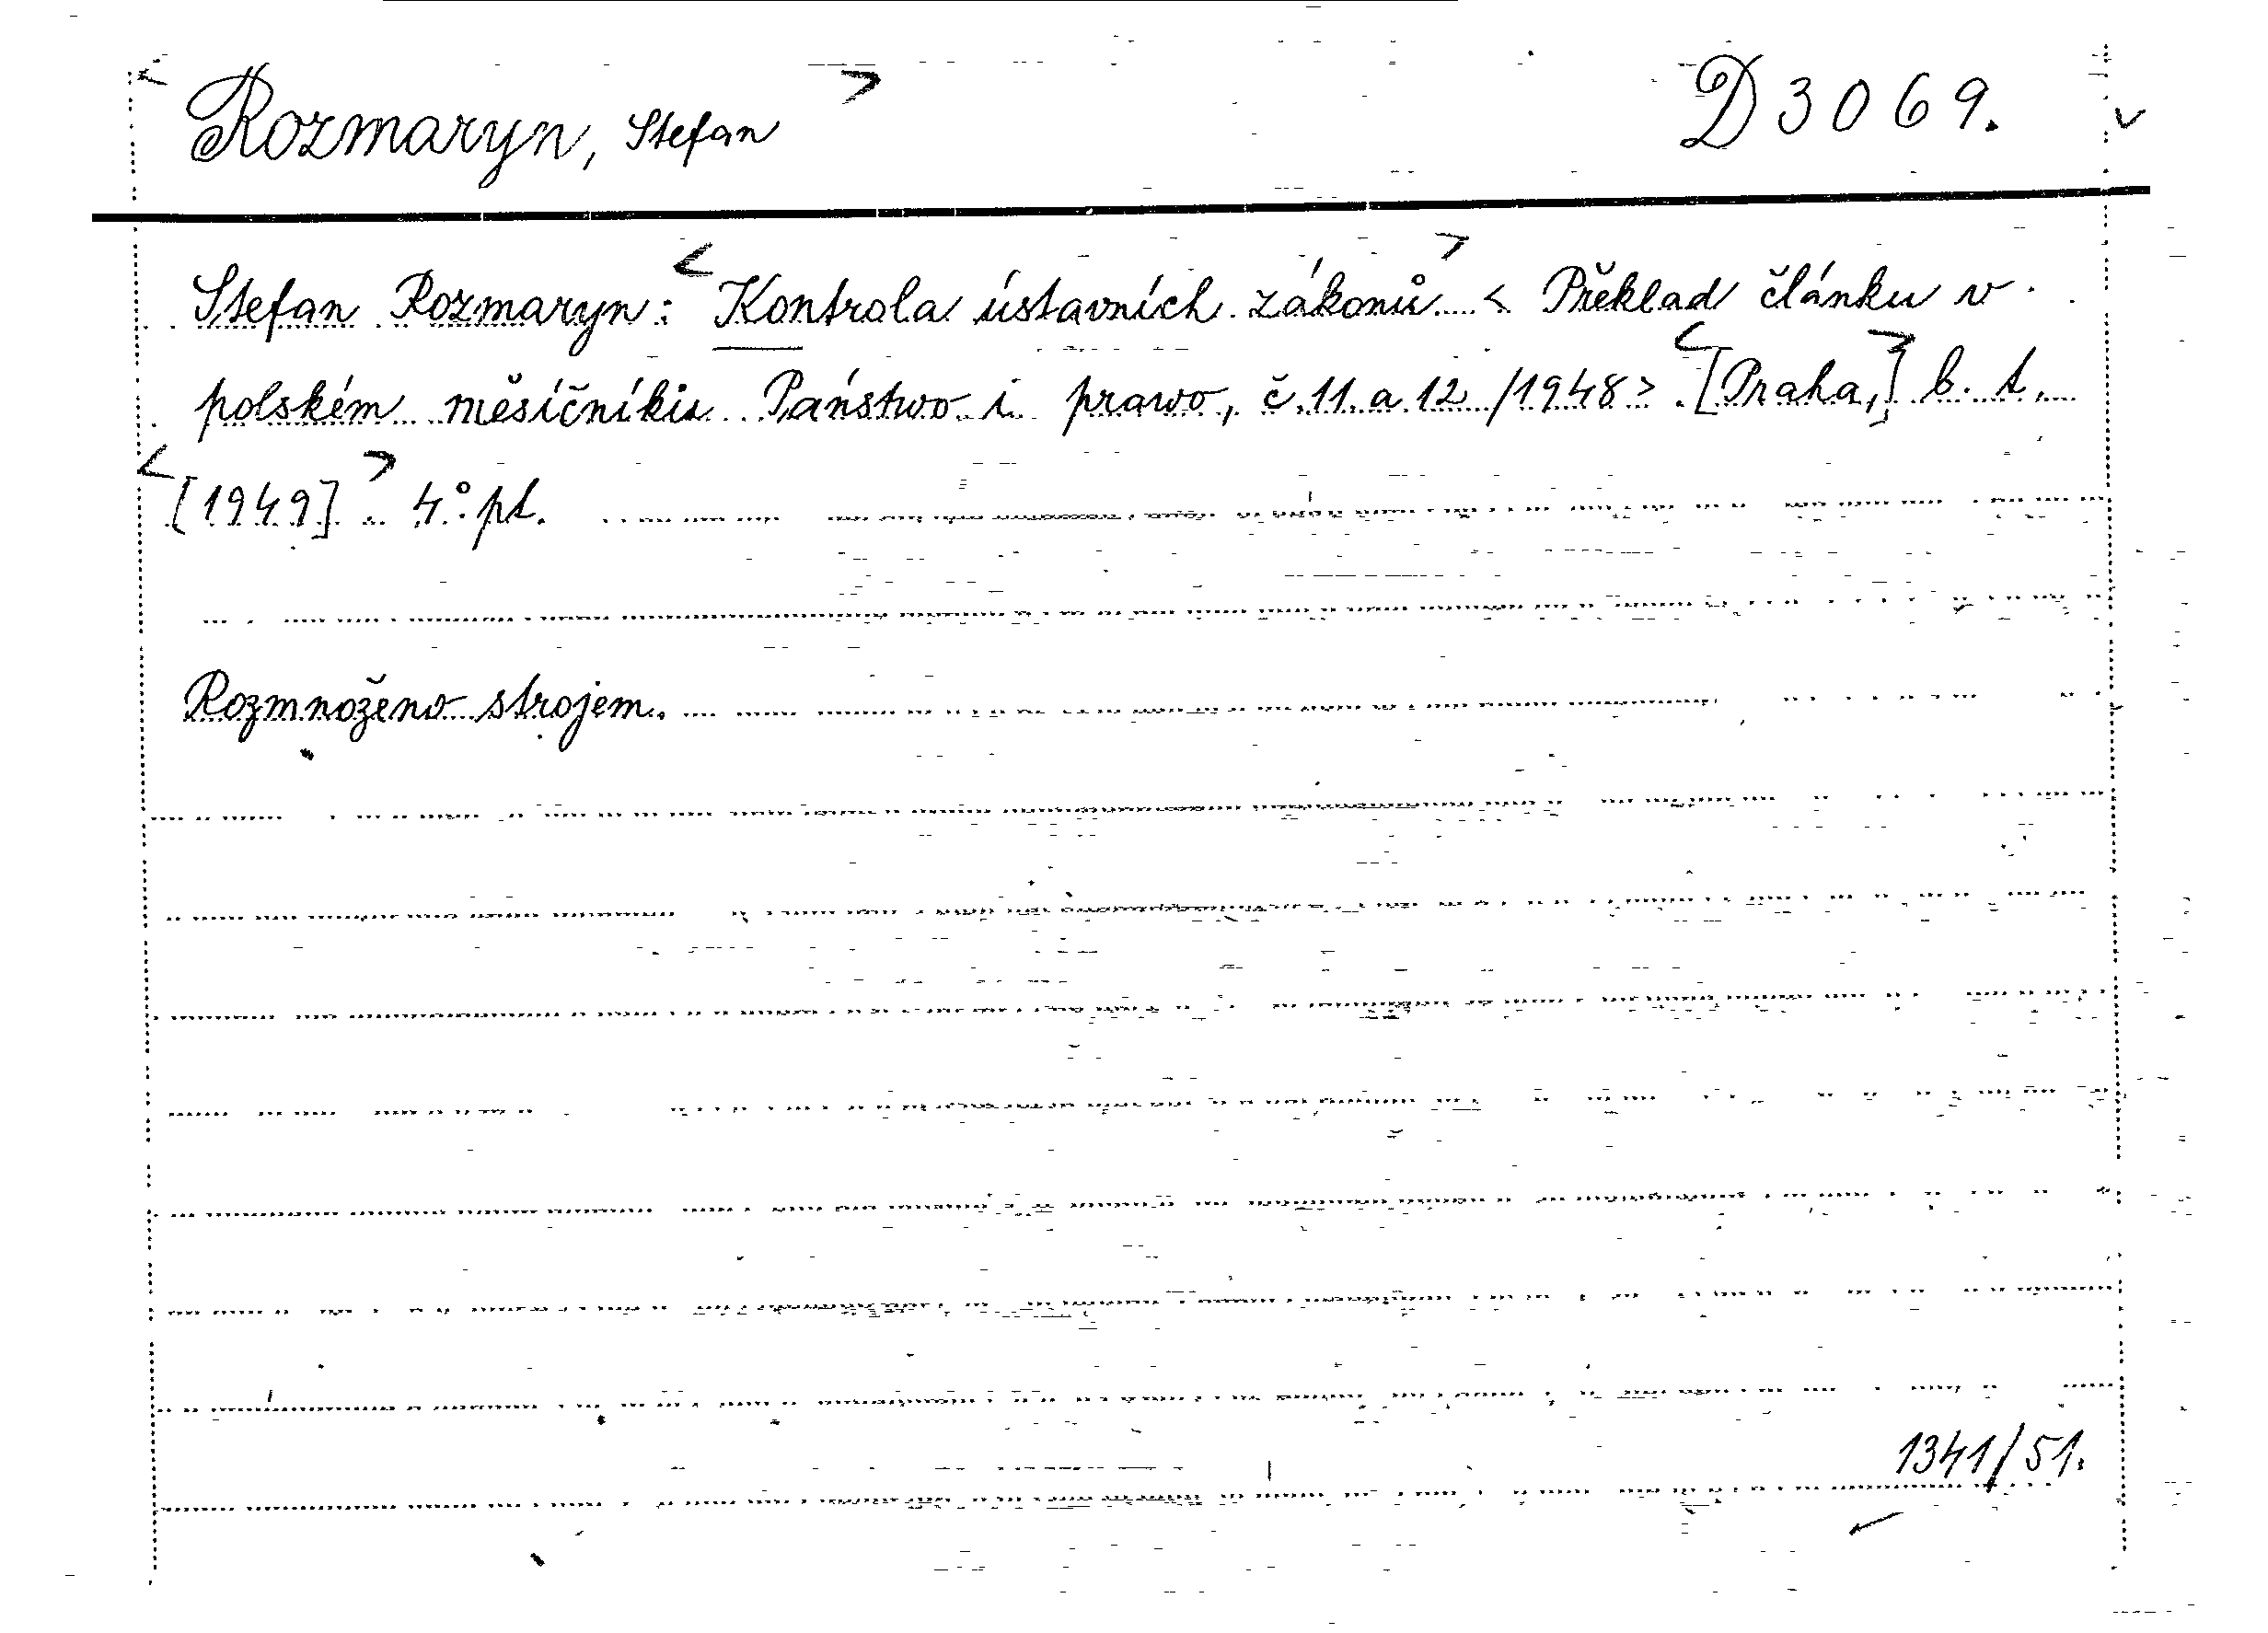 < Rozmaryn, Stefan > D 3069.
Stefan Rozmaryn: < Kontrola ústavních zákonů > < Překlad článku v
polském měsíčníku Państwo i prawo, č. 11 a 12 /1948 > < [Praha,] > b. t.
< [1949] > 4° pt.
Rozmnoženo strojem.
1341/51.